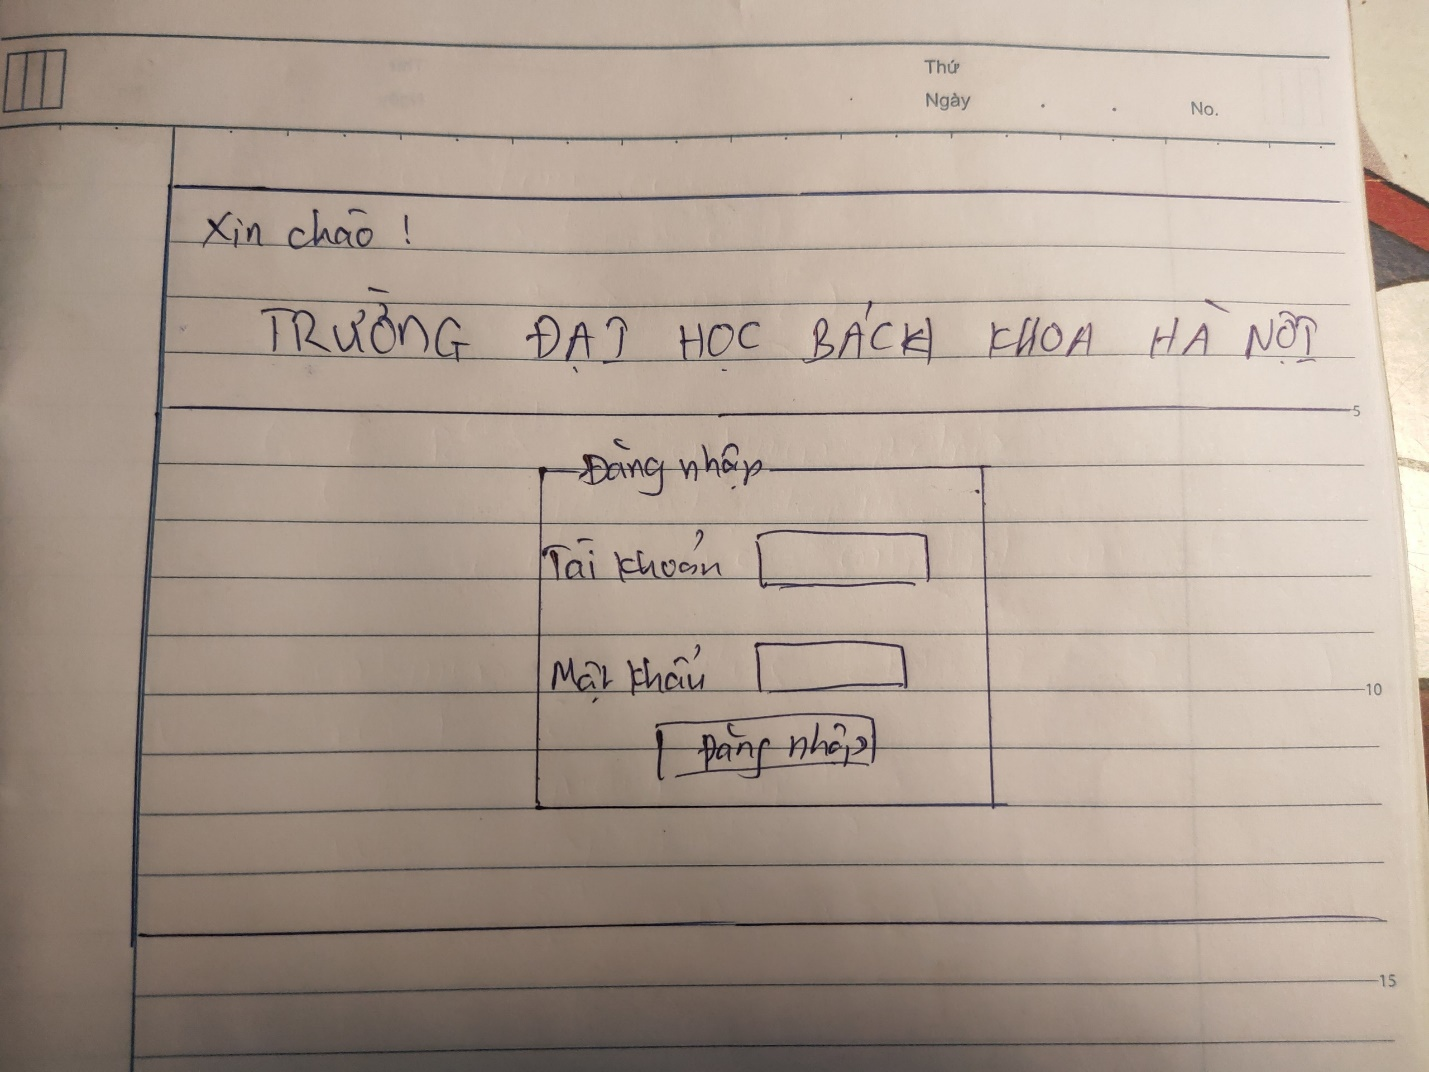 Thứ
Ngày . . No.
Xin chào !
TRƯỜNG ĐẠI HỌC BÁCH KHOA HÀ NỘI
5
Đăng nhập
Tài khoản
Mật khẩu
10
Đăng nhập
15